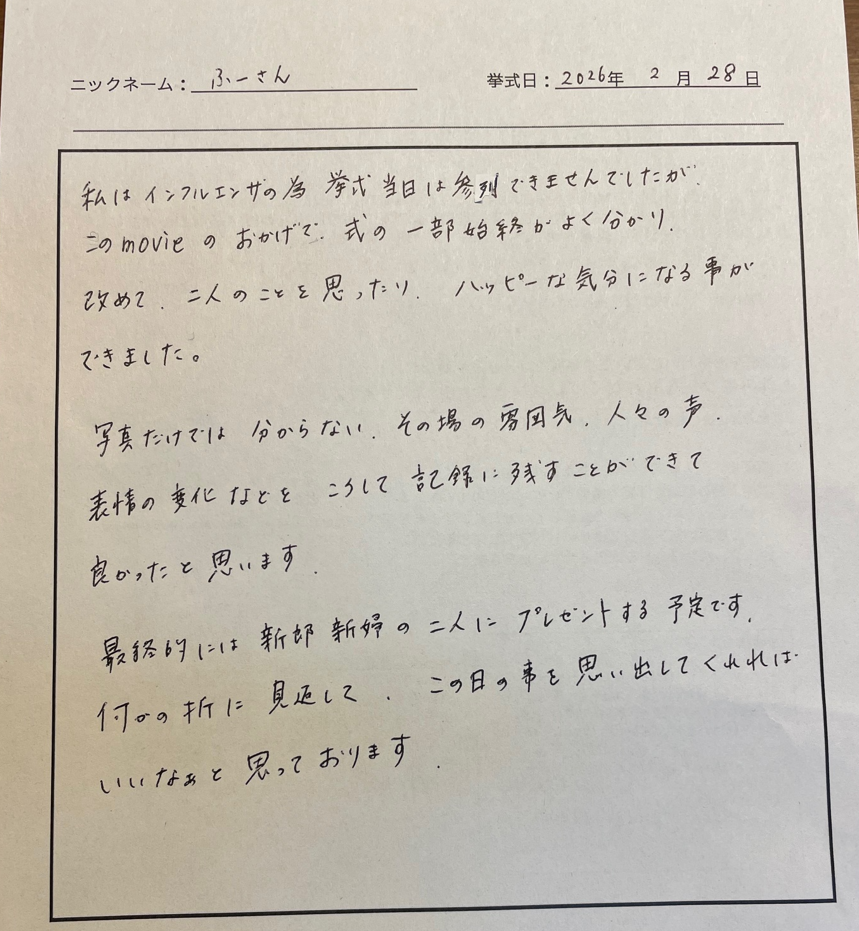 ニックネーム：ふーさん 挙式日：2026年 2月 28日
私はインフルエンザの為 挙式当日は参列できませんでしたが、
このmovieのおかげで、式の一部始終がよく分かり、
改めて、二人のことを思ったり、ハッピーな気分になる事が
できました。
写真だけでは分からない、その場の雰囲気、人々の声、
表情の変化などを こうして記録に残すことができて
良かったと思います。
最終的には新郎新婦の二人にプレゼントする予定です。
何かの折に見返して、この日の事を思い出してくれれば
いいなぁと思っております。